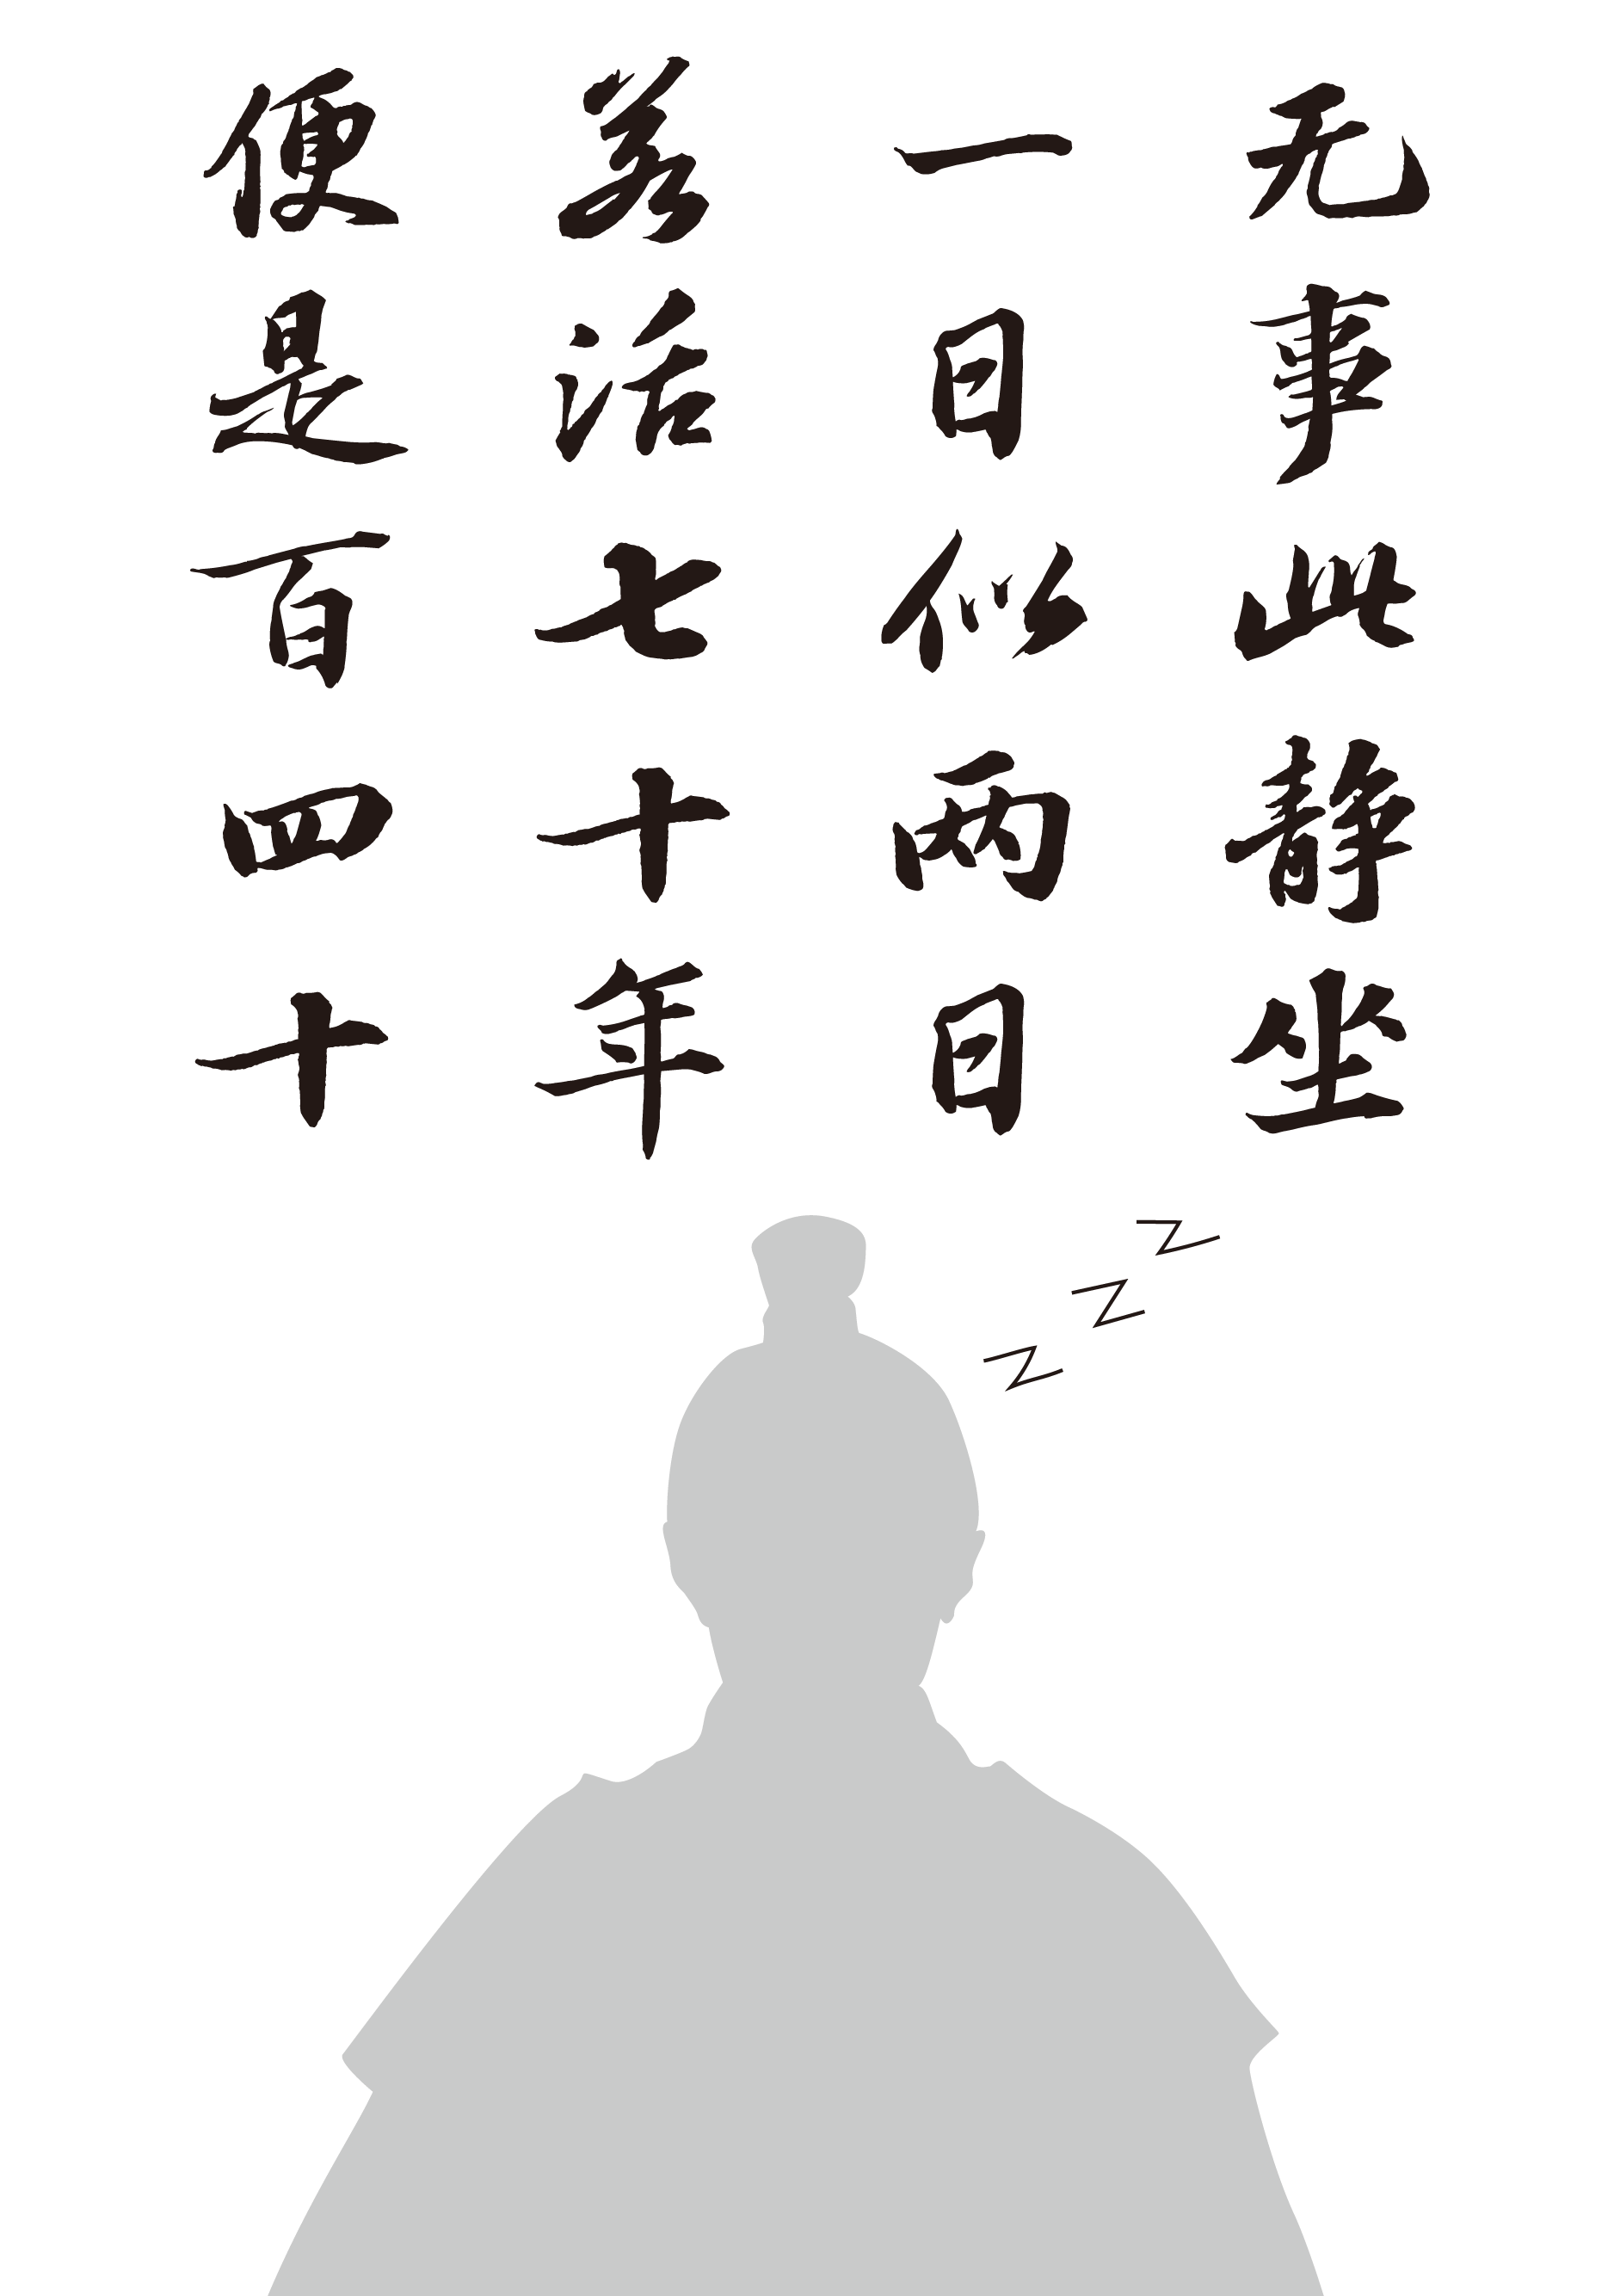 无事此静坐
一日似两日
若活七十年
便是百四十
z
z
z